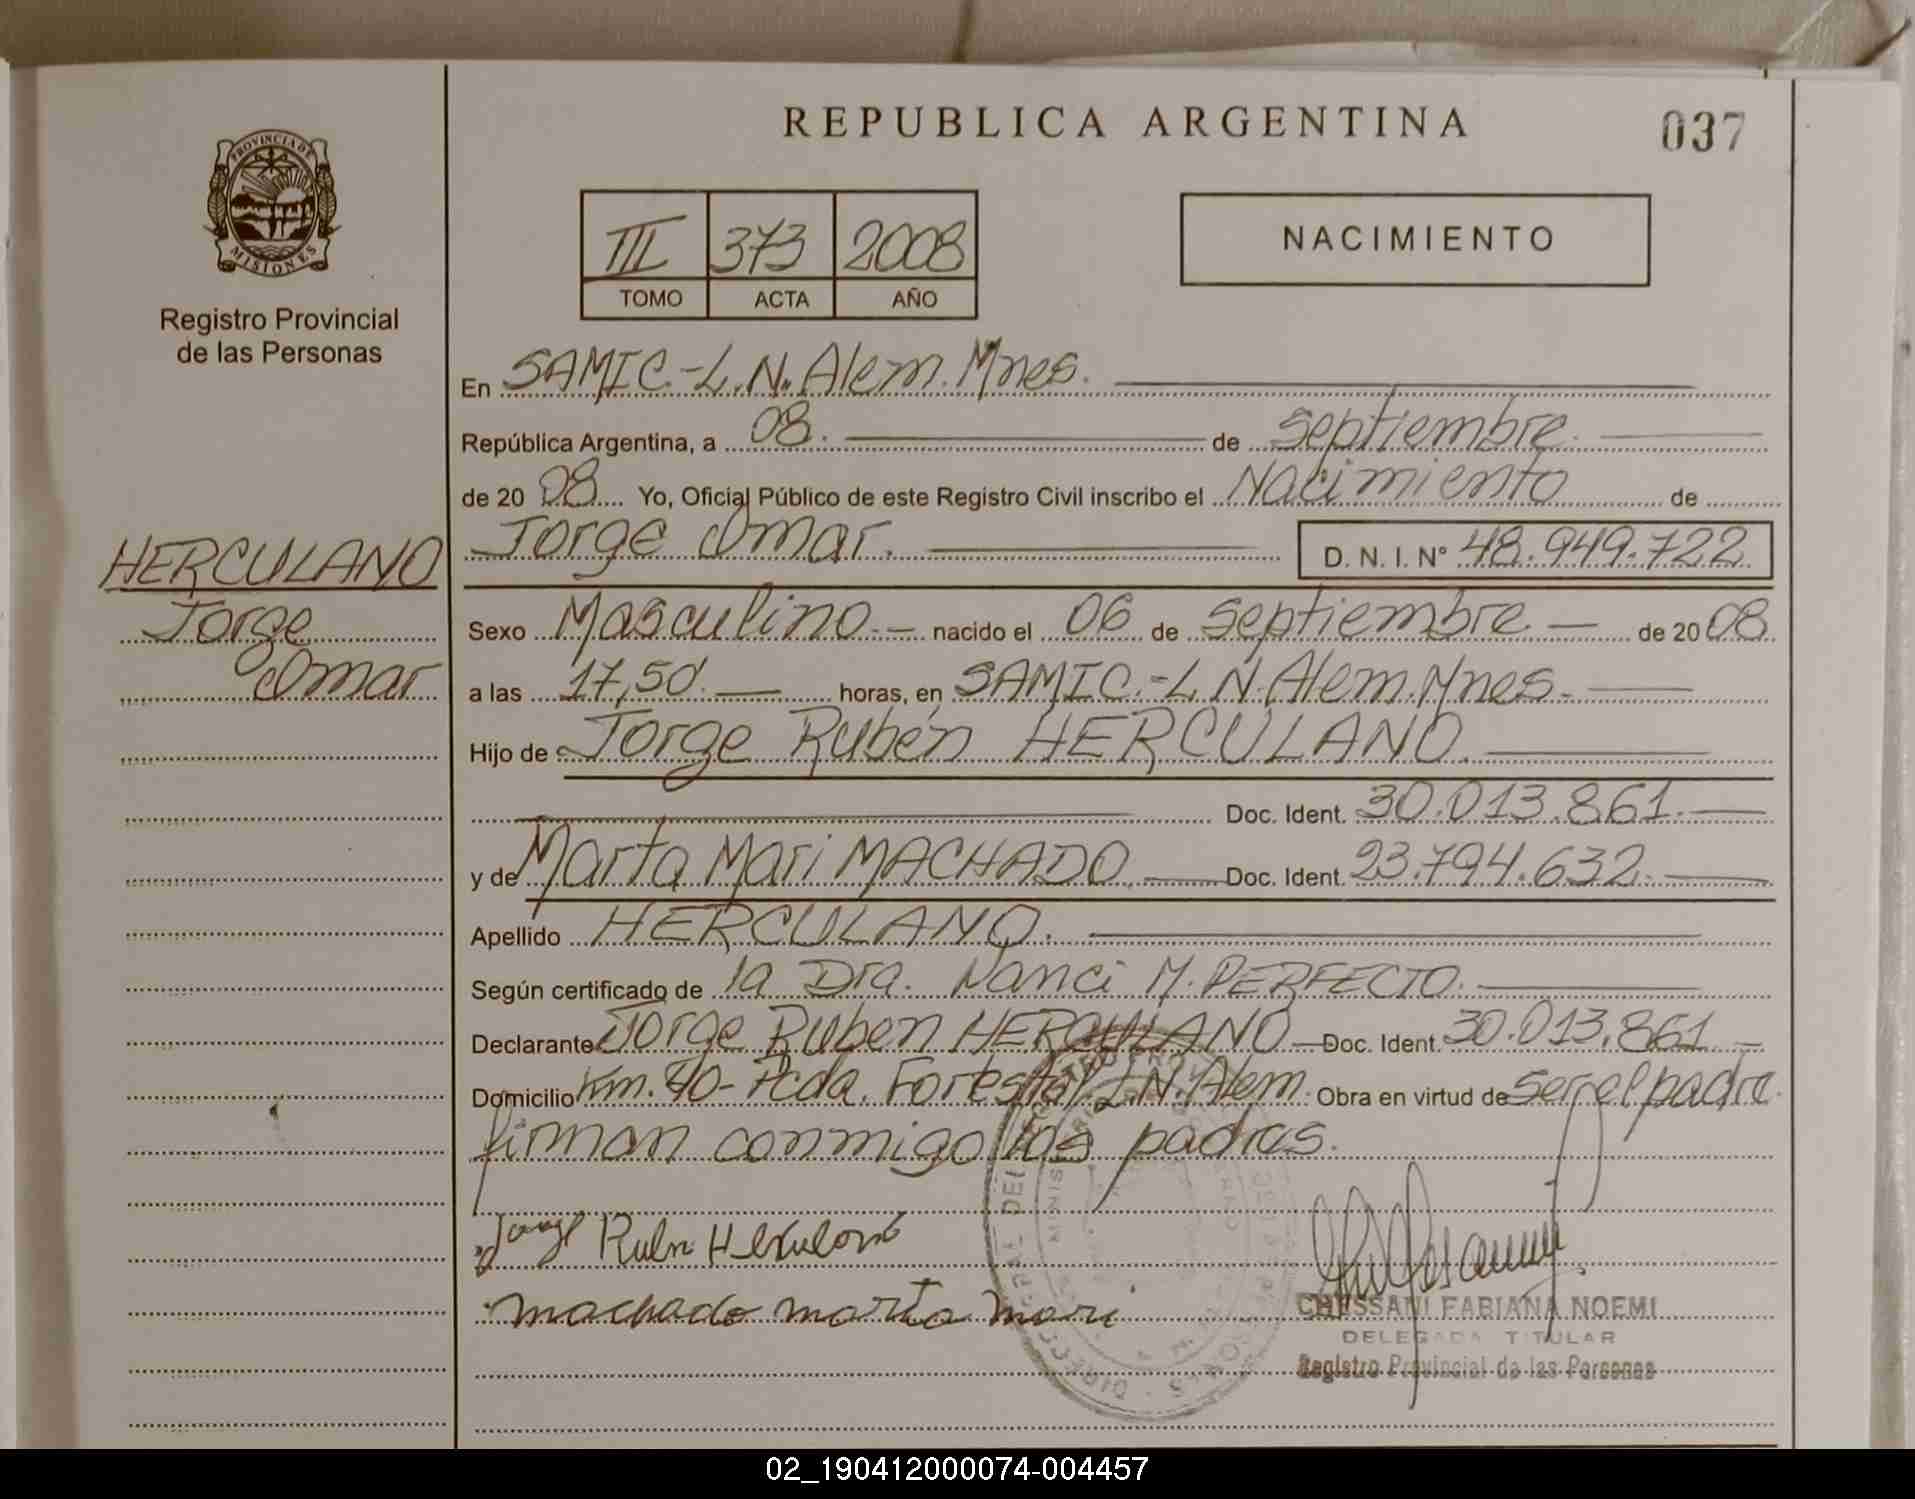 REPUBLICA ARGENTINA
037
PROVINCIA DE
MISIONES
Registro Provincial
de las Personas
III 373 2008
TOMO ACTA AÑO
NACIMIENTO
En SAMIC.-L.N.Alem.Mnes.
República Argentina, a 08. de septiembre.
de 20 08 Yo, Oficial Público de este Registro Civil inscribo el Nacimiento de
Jorge Omar. D. N. I. N° 48.949.722
HERCULANO
Jorge
Omar
Sexo Masculino.- nacido el 06 de septiembre de 20 08
a las 17,50. horas, en SAMIC.-L.N.Alem.Mnes.
Hijo de Jorge Rubén HERCULANO.
Doc. Ident. 30.013.861.
y de Marta Mari MACHADO. Doc. Ident. 23.794.632.
Apellido HERCULANO.
Según certificado de la Dra. Nanci M. PERFECTO.
Declarante Jorge Ruben HERCULANO Doc. Ident. 30.013.861
Domicilio Km. 40- Pcda. Forestal L.N.Alem. Obra en virtud de ser el padre.
firman conmigo los padres.
Jorge Ruben Herculano
machado marta mari
CHESSANI FABIANA NOEMI
DELEGADA TITULAR
Registro Provincial de las Personas
02_190412000074-004457